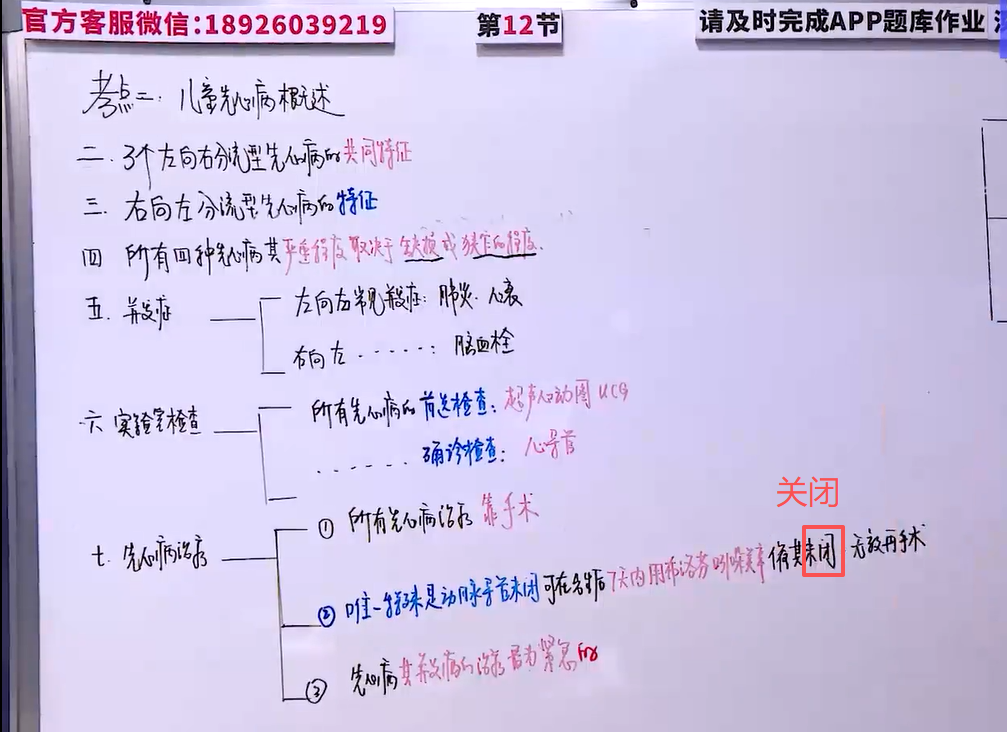 官方客服微信:18926039219
第12节
请及时完成APP题库作业
考点二. 儿童先心病概述
二. 3个左向右分流型先心病的共同特征
三. 右向左分流型先心病的特征
四 所有四种先心病其严重程度取决于缺损或狭窄的程度.
五. 并发症
左向右常见并发症: 肺炎. 心衰
右向左······: 脑血栓
六 实验室检查
所有先心病的首选检查: 超声心动图 UCG
········确诊检查: 心导管
关闭
七. 先心病治疗
① 所有先心病治疗 靠手术
② 唯一特殊是动脉导管未闭 可在生后7天内用布洛芬 吲哚美辛 使其未闭 无效再手术
③ 先心病其并发病的治疗最为紧急